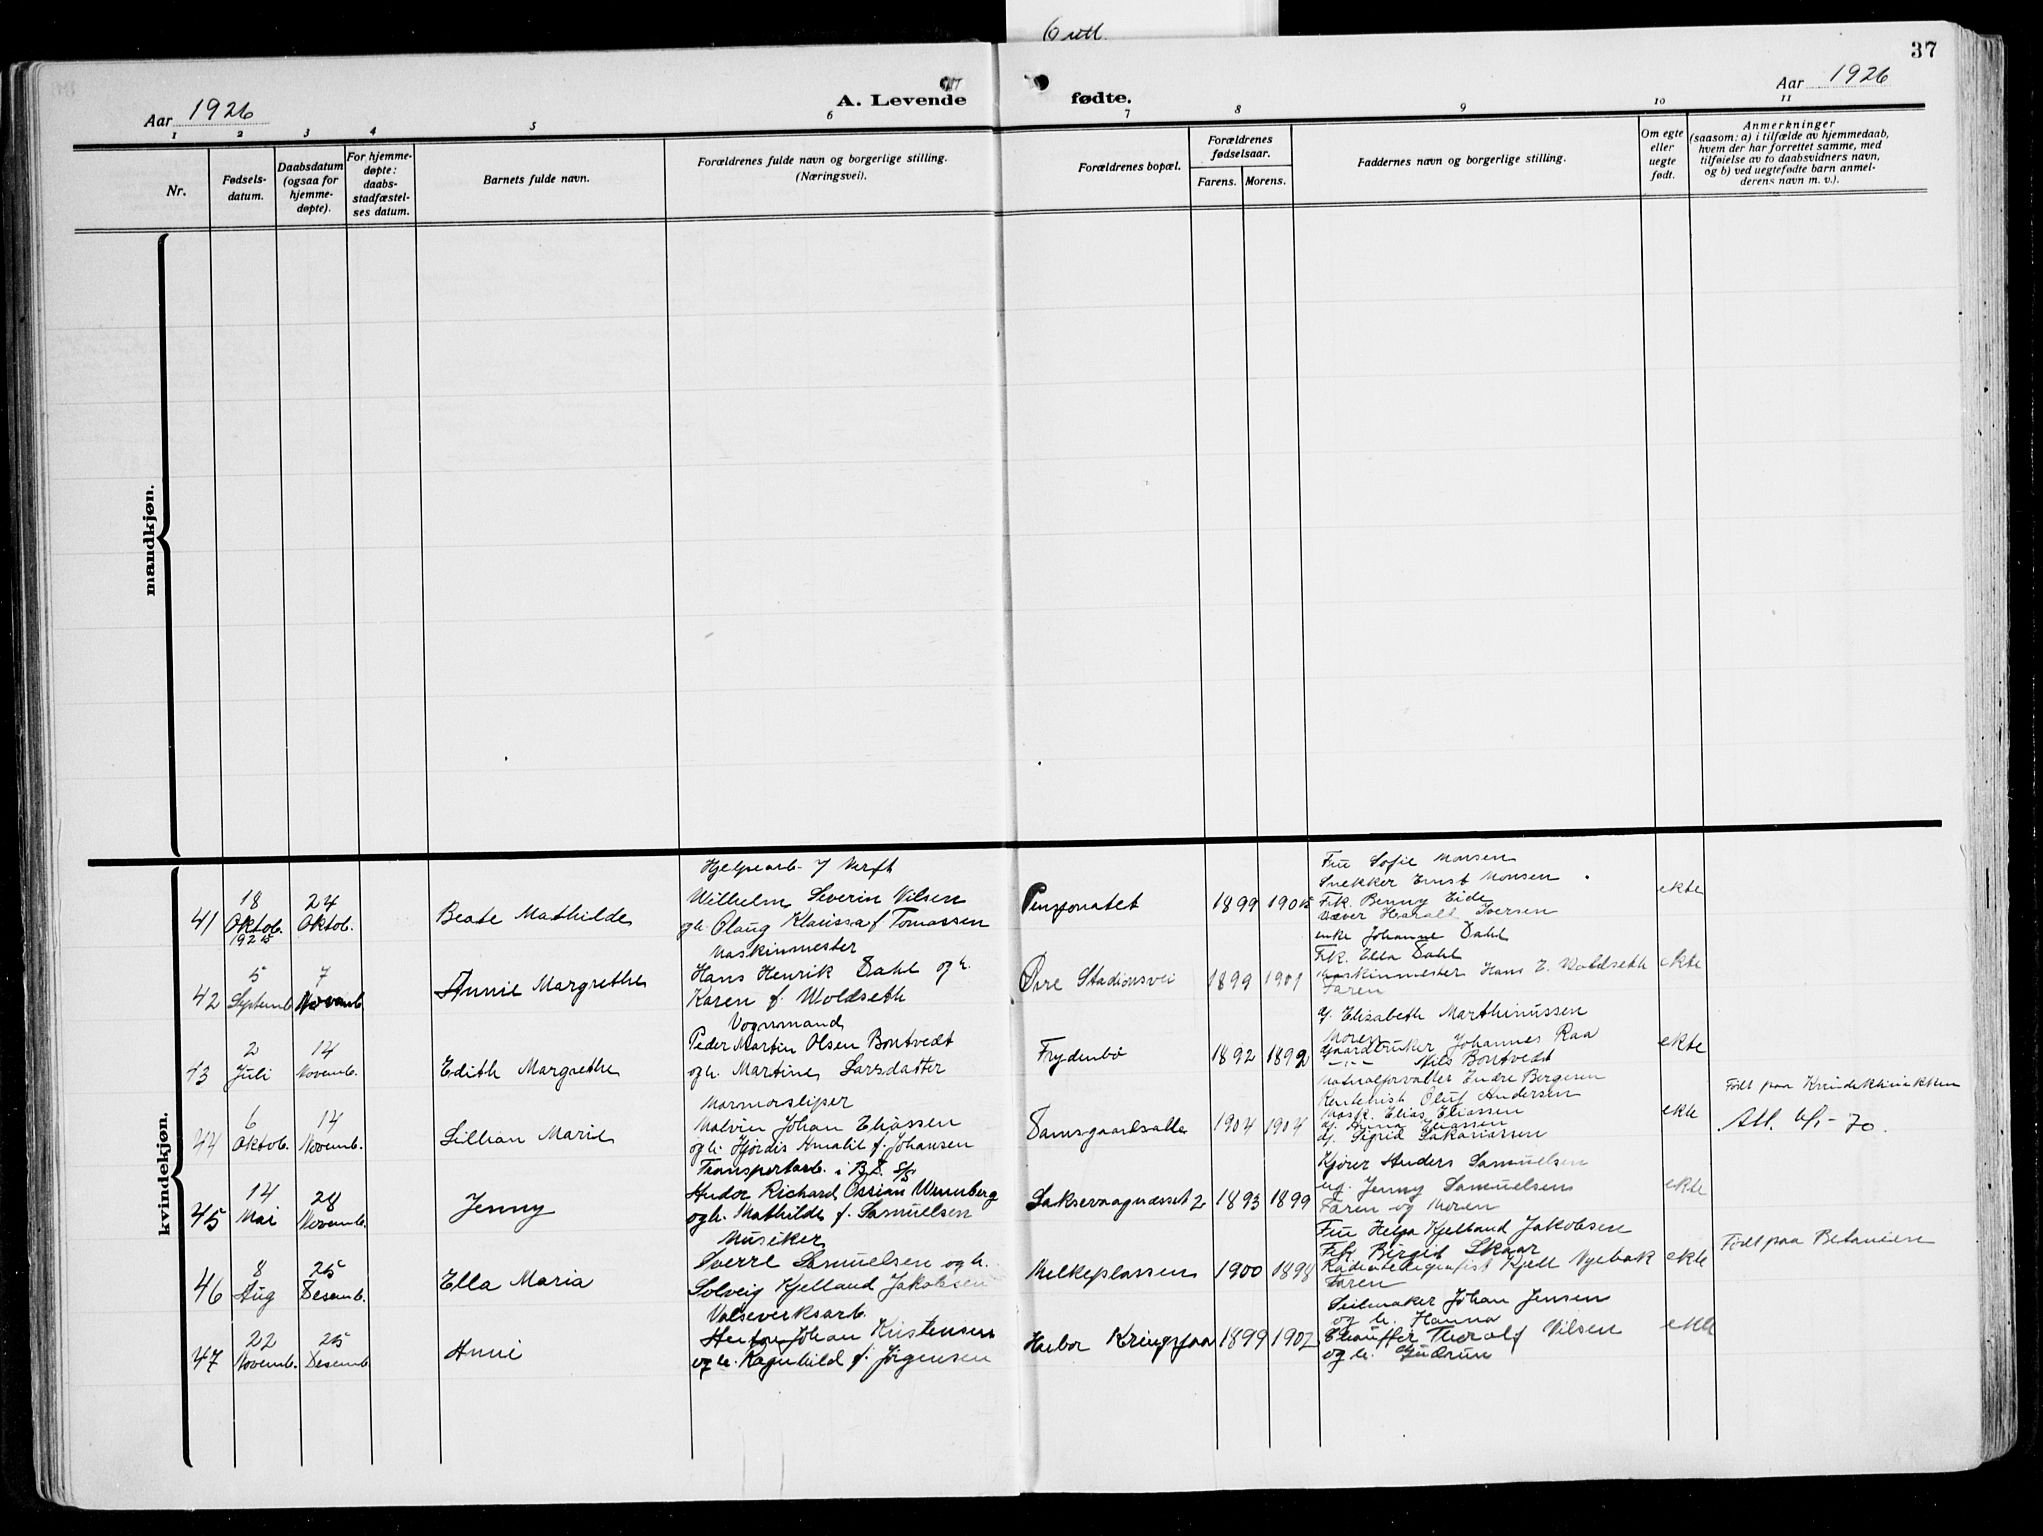 6 utl.
37
Aar 1926
A. Levende
fødte.
Aar 1926
1 2 3 4 5 6 7 8 9 10 11
Nr.
Fødsels-
datum.
Daabsdatum
(ogsaa for
hjemme-
døpte).
For hjemme-
døpte:
daabs-
stadfæstel-
ses datum.
Barnets fulde navn.
Forældrenes fulde navn og borgerlige stilling.
(Næringsvei).
Forældrenes bopæl.
Forældrenes
fødselsaar.
Farens. Morens.
Faddernes navn og borgerlige stilling.
Om egte
eller
uegte
født.
Anmerkninger
(saasom: a) i tilfælde av hjemmedaab,
hvem der har forrettet samme, med
tilføielse av to daabsvidners navn,
og b) ved uegtefødte barn anmel-
derens navn m. v.).
mandkjøn.
kvindekjøn.
41
18
Oktob.
1925
24
Oktob.
Beate Mathilde
Hjelpearb. Verft
Wilhelm Severin Nilsen
og h. Olaug Klarissa f Tomassen
Pensjonatet
1899
1905
Fru Sofie Monsen
Snekker Ernst Monsen
Frk. Benny Eide
Væver Harald Iversen
enke Johanne Dahl
ekte
42
5
Septemb.
7
Novemb.
Annie Margrethe
Maskinmester
Hans Henrik Dahl og h.
Karen f. Woldseth
Øvre Stadionsvei
1899
1901
Frk. Ella Dahl
Maskinmester Hans E. Woldseth
Faren
ekte
43
2
Juli
14
Novemb.
Edith Margrethe
Vognmand
Peder Martin Olsen Bontvedt
og h. Martine Larsdatter
Frydenbø
1892
1892
g. Elizabeth Marthinussen
Moren
Gaardbruker Johannes Raa
Nils Bontvedt
Materialforvalter Endre Bergesen
ekte
44
6
Oktob.
14
Novemb.
Lillian Marie
Marmorsliper
Malvin Johan Eliassen
og h. Hjørdis Amalie f. Johansen
Damsgaardsalle
1904
1904
Oluf Andersen
Mask. Elias Eliassen
g. Anna Eliassen
g. Sigrid Sakariassen
ekte
Født paa Kvindeklinikken
Att. 6/1-70.
45
14
Mai
28
Novemb.
Jenny
Transportarb. i B.E. S/S
Andor Richard Ossian Wennberg
og h. Mathilde f. Samuelsen
Laksevaagnesset 2
1893
1899
Kjører Anders Samuelsen
ug. Jenny Samuelsen
Faren og Moren
ekte
46
8
Aug
25
Desemb.
Ella Maria
Musiker
Sverre Samuelsen og h.
Solveig Kjelland Jakobsen
Melkeplassen
1900
1898
Fru Helga Kjelland Jakobsen
Frk. Birgit Skaar
Radiotelegrafist Kjell Nyebak
Faren
ekte
Født paa Betanien
47
22
Novemb.
25
Desemb.
Anni
Valseverksarb.
Johan Kristensen
og h. Ragnhild f. Jørgensen
1899
1902
Seilmaker Johan Jensen
og h. Hanna
Chauffør Thoralf Nilsen
og h. Gudrun
ekte